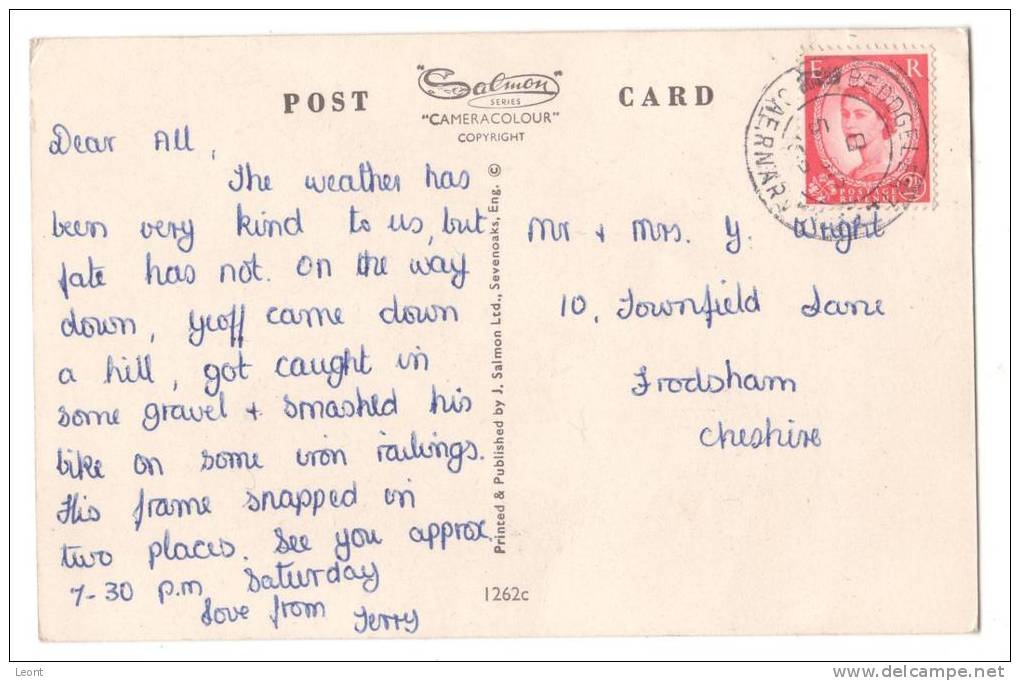 POST
"Salmon"
SERIES
"CAMERACOLOUR"
COPYRIGHT
CARD
E R
POSTAGE
REVENUE
BEDDGELERT
CAERNARVON
Dear All,
The weather has
been very kind to us, but
fate has not. On the way
down, Geoff came down
a hill, got caught in
some gravel + smashed his
bike on some iron railings.
His frame snapped in
two places. See you approx.
7-30 p.m Saturday
Love from Terry
Printed & Published by J. Salmon Ltd., Sevenoaks, Eng. ©
1262c
Mr + Mrs. G. Wright
10, Townfield Lane
Frodsham
Cheshire
Leont
www.delcampe.net